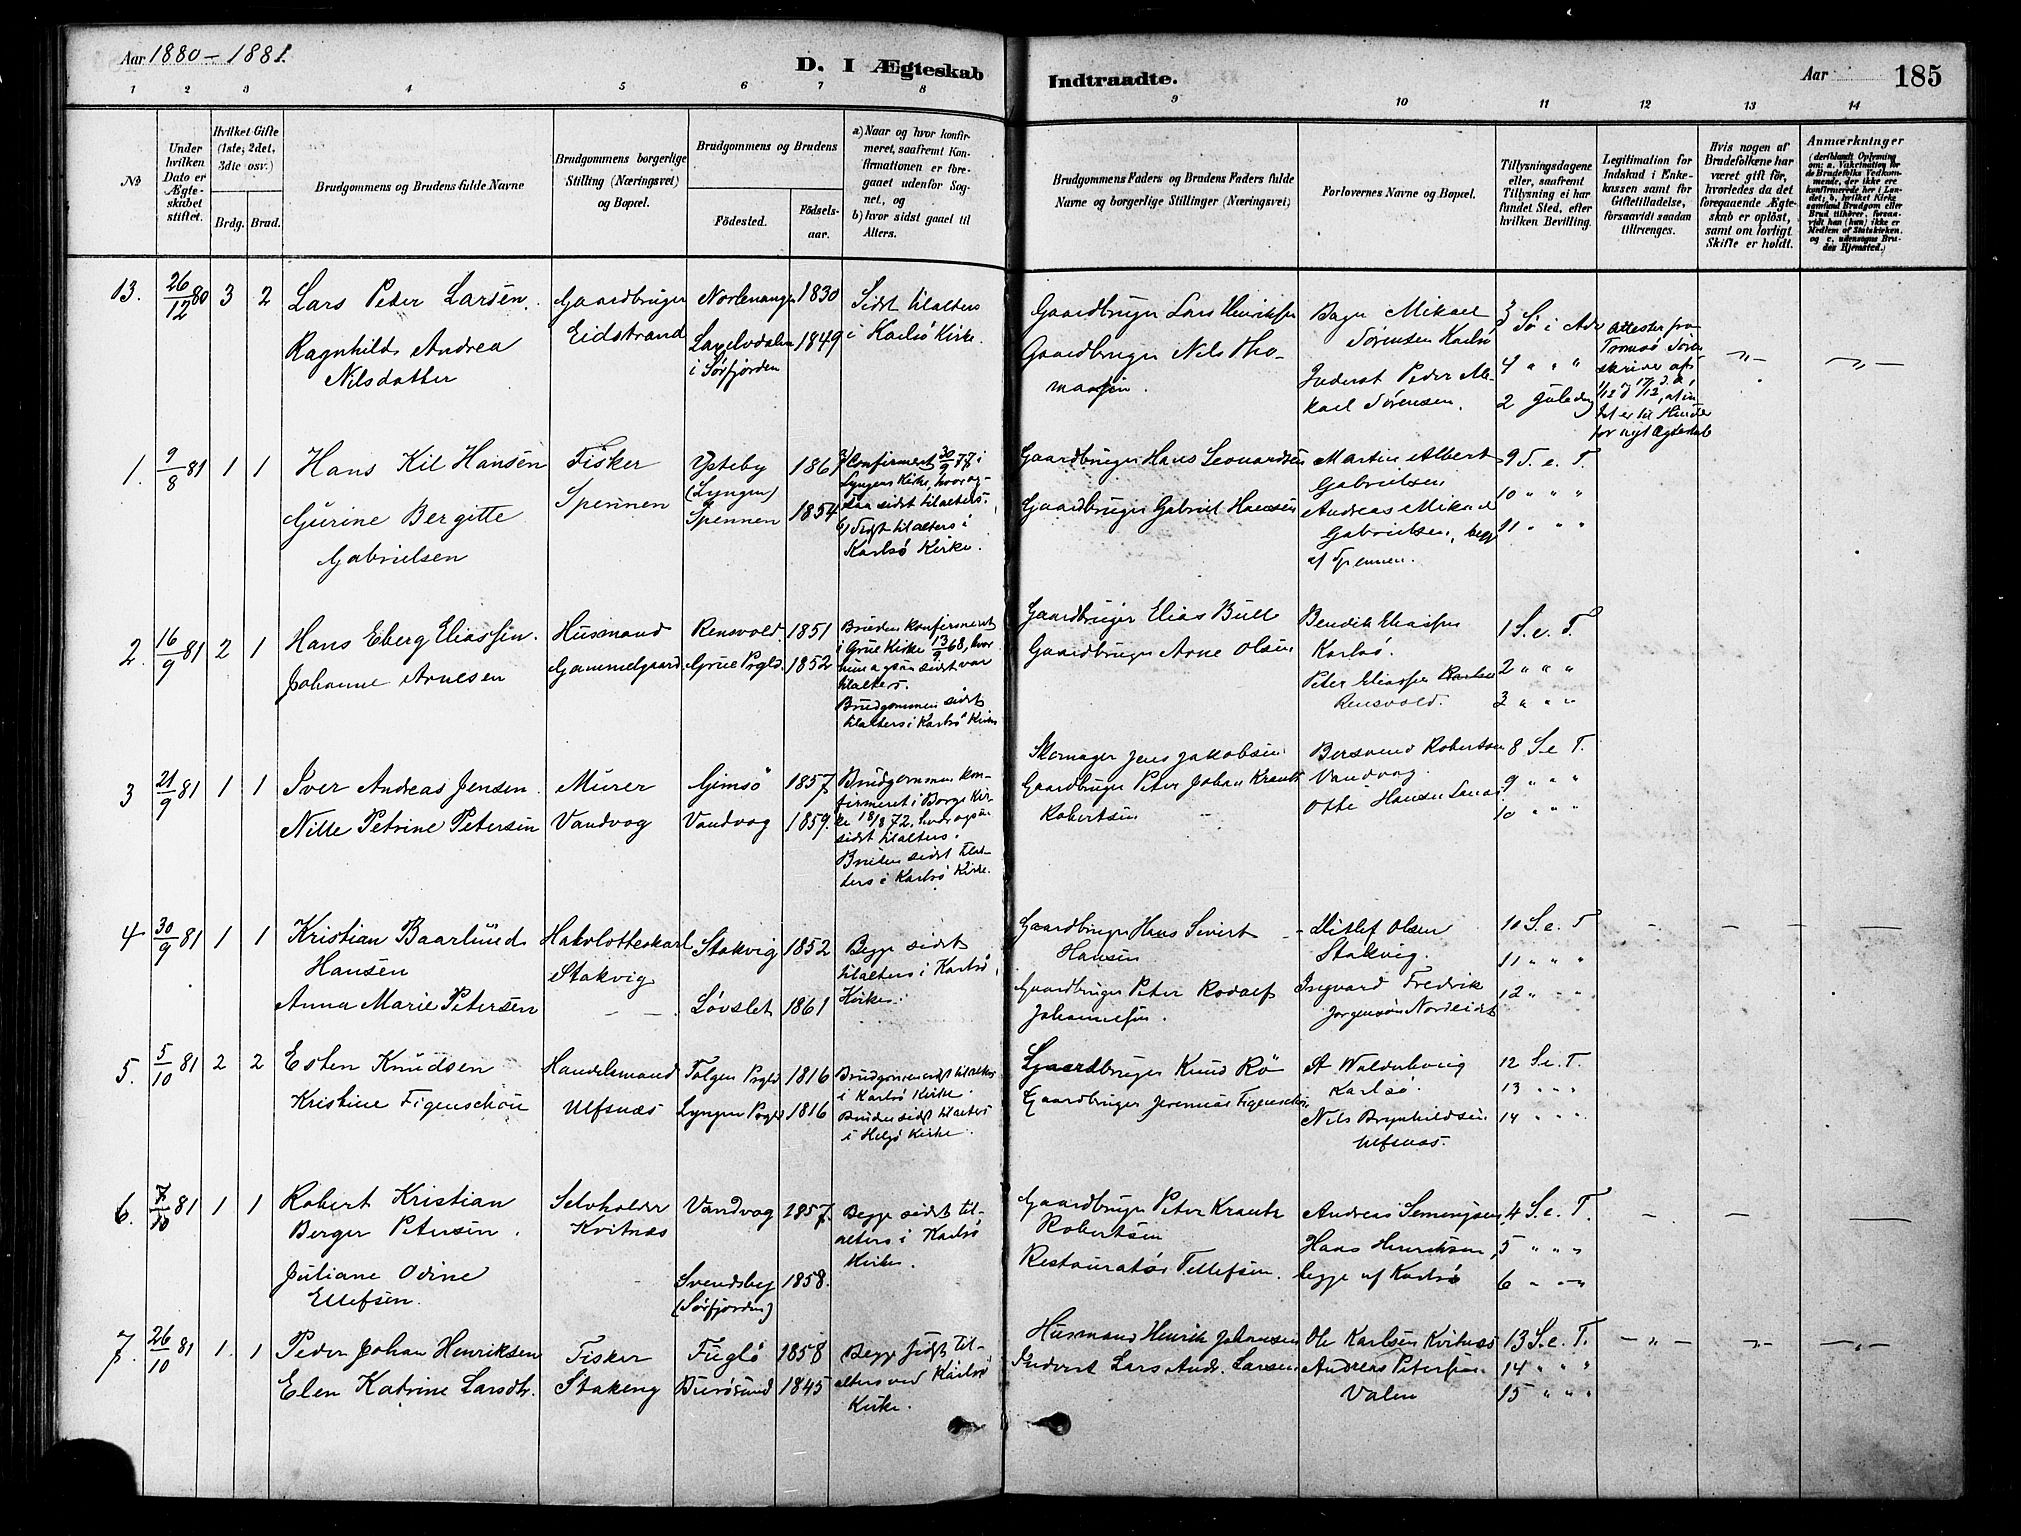 Aar 1880-1881.
D. I Ægteskab Indtraadte.
Aar
185
1 2 3 4 5 6 7 8 9 10 11 12 13 14
No
Under hvilken Dato er Ægteskabet stiftet.
Hvilket Gifte (1ste, 2det, 3die osv.)
Brdg. Brud.
Brudgommens og Brudens fulde Navne
Brudgommens borgerlige Stilling (Næringsvei) og Bopæl.
Brudgommens og Brudens
Fødested.
Fødsels-aar.
a) Naar og hvor konfirmeret, saafremt Konfirmationen er foregaaet udenfor Sognet, og
b) hvor sidst gaaet til Alters.
Brudgommens Faders og Brudens Faders fulde Navne og borgerlige Stillinger (Næringsvei)
Forlovernes Navne og Bopæl.
Tillysningsdagene eller, saafremt Tillysning ei har fundet Sted, efter hvilken Bevilling.
Legitimation for Indskud i Enkekassen samt for Giftetilladelse, forsaavidt saadan tiltrænges.
Hvis nogen af Brudefolkene har været gift før, hvorledes da det foregaaende Ægteskab er opløst, samt om lovligt Skifte er holdt.
Anmærkninger
13. 26/12 80 3 2
Lars Peter Larsen.
Ragnhild Andrea
Nilsdatter
Gaardbruger
Eidstrand
1830
1849
i Sørfjorden
Sidst tilalters
i Karlsø Kirke.
Gaardbruger Lars Henriksen
Gaardbruger Nils Thomassen.
Mikael
Sørensen Karlsø
Inderst Peder Mikael Sørensen.
3 Sø i Adv
4 " " "
2 Juledag
1. 9/8 81 1 1
Hans Kil Hansen
Gurine Bergitte
Gabrielsen
Fisker
Spennen
(Lyngen)
Spennen
1854
Confirmeret 30/9 77 i
Lyngens Kirke, hvor og-
saa sidst tilalters.
b) Sidst tilalters i
Karlsø Kirke.
Gaardbruger Hans Leonardsen
Gaardbruger Gabriel Hansen
Martin Albert
Gabrielsen
Andreas Mikael
Gabrielsen, begge
af Spennen.
9 S. e. T.
10 " " "
11 " " "
2. 16/9 81 2 1
Hans Eberg Eliassen.
Johanne Arnesen
Husmand
Gammelgaard
Rensvold. 1851
Grue Prgld. 1852
Bruden konfirmeret
i Grue Kirke 13/9 68, hvor
hun ogsaa sidst var
tilalters.
Brudgommen sidst
tilalters i Karlsø Kirke
Gaardbruger Elias Bull
Gaardbruger Arne Olsen
Bendik Eliassen
Karlsø.
Peter Eliassen
Rensvold.
1 S. e. T.
2 " " "
3 " " "
3 21/9 81 1 1
Iver Andreas Jensen.
Nille Petrine Petersen
Murer
Vandvag
Gimsø 1857
Vandvag 1859.
Brudgommen kon-
firmeret i Borge Kir-
ke 18/8 72, hvor ogsaa
sidst tilalters.
Bruden sidst tilal-
ters i Karlsø Kirke.
Skomager Jens Jakobsen
Gaardbruger Peter Johan Krantz
Robertsen
Bersvend Robertsen
Vandvag.
Otte Hansen
8 S. e T.
9 " " "
10 " " "
4 30/9 81 1 1
Kristian Baarlund
Hansen
Anna Marie Petersen
Halvlotteskarl
Stakvig
Stakvig 1852
Løvslet 1861
Begge sidst
tilalters i Karlsø
Kirke.
Gaardbruger Hans Sivert
Hansen
Gaardbruger Peter Rodolf
Johannesen.
Ditlef Olsen
Stakvig.
Ingvard Fredrik
Jørgensen Nordeidet
10 S. e. T
11 " " "
12 " " "
5. 5/10 81 2 2
Esten Knudsen
Kristine Figenschou
Handelsmand
Ulfsnæs
Tolgen Prgld 1816
Lyngen Prgld 1816
Brudgommen sidst tilalters
i Karlsø Kirke.
Bruden sidst tilalters
i Helgø Kirke.
Gaardbruger Knud Rø
Gaardbruger Jeremias Figenschou
Karlsø.
Nils Brynhildsen
Ulfsnæs.
12 S. e. T.
13 " " "
14 " " "
6. 7/10 81 1 1
Robert Kristian
Berger Petersen.
Juliane Odine
Ellefsen.
Selvholder
Kvitnæs
Vandvag 1857.
Svendsby 1858.
(Sørfjorden)
Begge sidst til-
alters i Karlsø
Kirke.
Gaardbruger Peter Krantz
Robertsen
Restauratør Tellefsen.
Andreas Simonsen
Hans Henriksen,
begge af Karlsø
4 S. e. T.
5 " " "
6 " " "
7. 26/10 81 1. 1
Peder Johan Henriksen
Elen Katrine Larsdtr.
Fisker
Stakeng
Fuglø 1858
Burøsund 1845
Begge sidst til-
alters ved Karlsø
Kirke.
Husmand Henrik Johansen
Inderst Lars Andr. Larsen
Ole Karlsen Kvitnæs
Andreas Petersen
Valen
13 S. e. T.
14 " " "
15 " " "